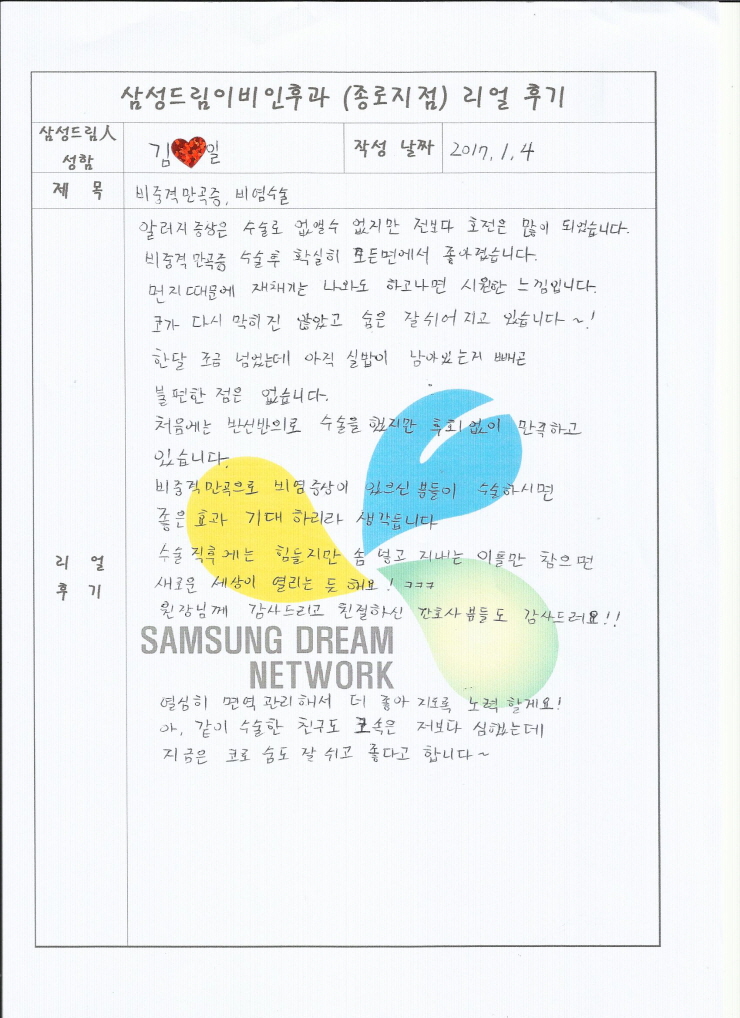 삼성드림이비인후과 (종로지점) 리얼 후기
삼성드림人
성함
김❤일
작성 날짜
2017, 1, 4
제 목
비중격만곡증, 비염수술
리 얼
후 기
알러지증상은 수술로 없앨수 없지만 전보다 호전은 많이 되었습니다.
비중격만곡증 수술후 확실히 모든면에서 좋아졌습니다.
먼지때문에 재채기는 나와도 하고나면 시원한 느낌입니다.
코가 다시 막히진 않았고 숨은 잘쉬어지고 있습니다~!
한달 조금 넘었는데 아직 실밥이 남아있는거 빼곤
불편한 점은 없습니다.
처음에는 반신반의로 수술을 했지만 후회없이 만족하고
있습니다.
비중격만곡으로 비염증상이 있으신 분들이 수술하시면
좋은 효과 기대 하리라 생각듭니다
수술 직후에는 힘들지만 솜 넣고 지내는 이틀만 참으면
새로운 세상이 열리는 듯 해요! ㅋㅋㅋ
원장님께 감사드리고 친절하신 간호사분들도 감사드려요!!
SAMSUNG DREAM
NETWORK
열심히 면역관리해서 더 좋아지도록 노력할게요!
아, 같이 수술한 친구도 코속은 저보다 심했는데
지금은 코로 숨도 잘 쉬고 좋다고 합니다~